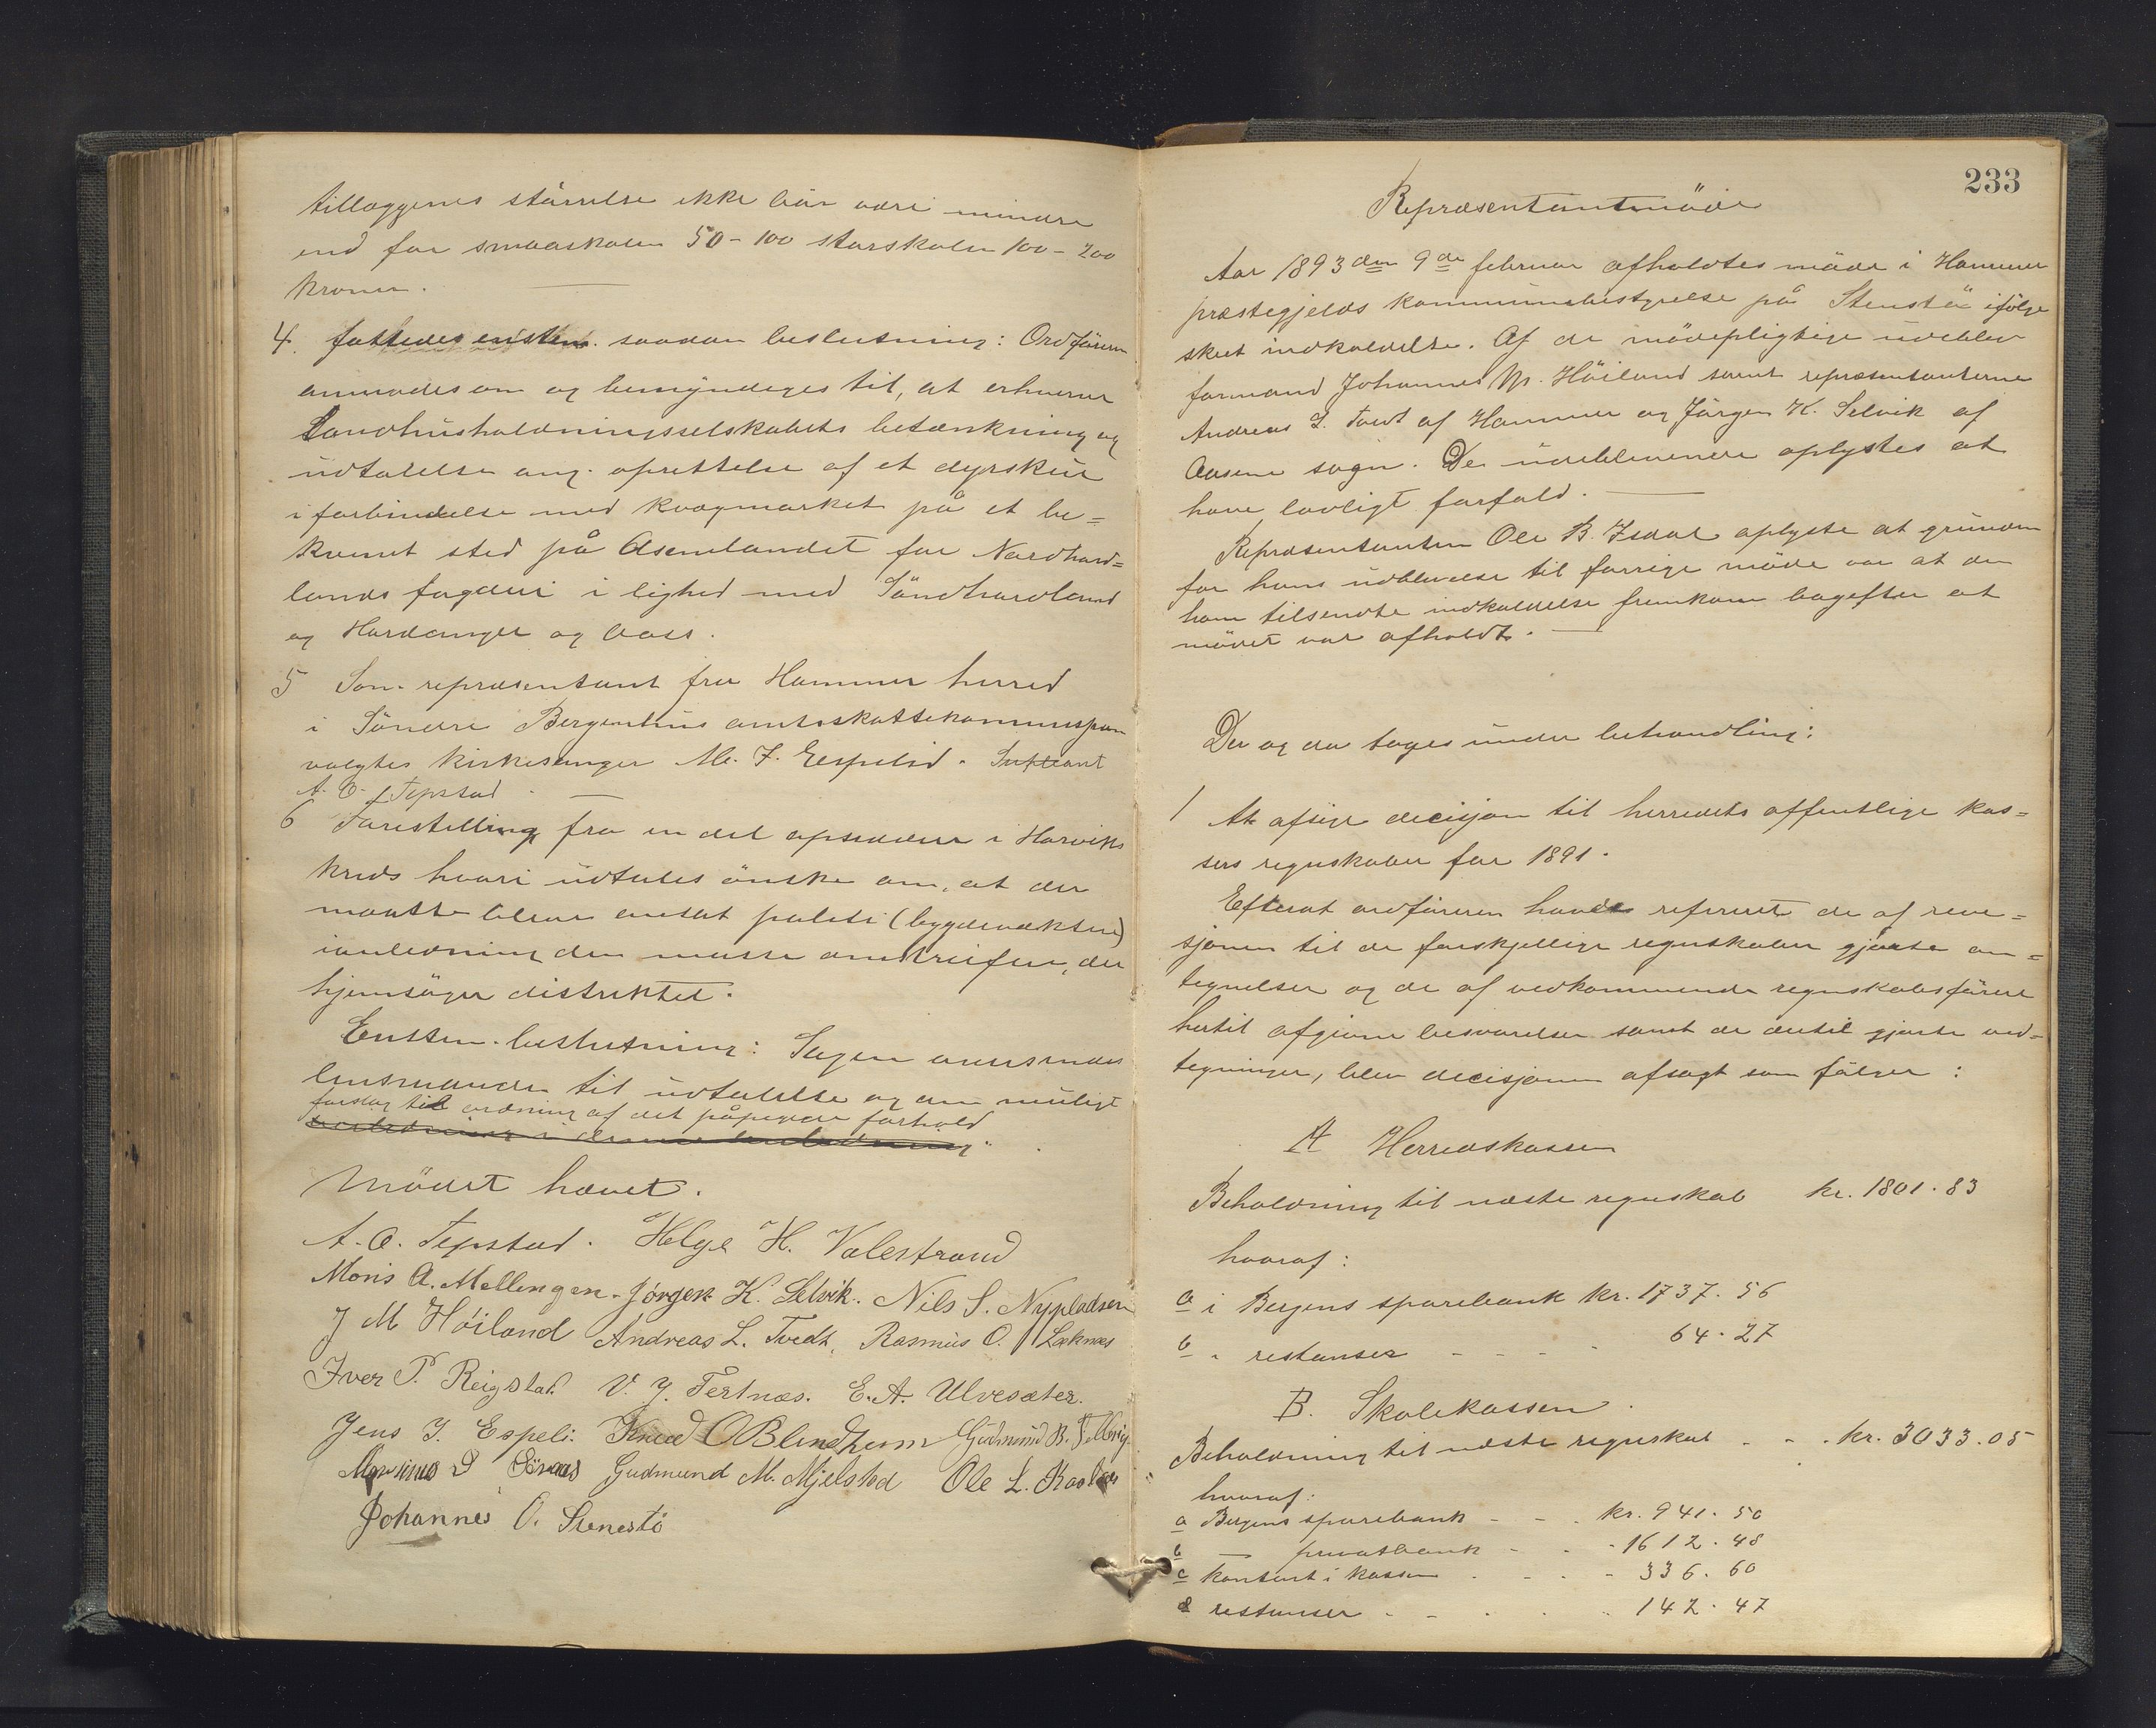 tillæggenes størrelse ikke bør være mindre
end for smaaskolen 50 - 100 storskolen 100 - 200
kroner.
4. fattedes enstem. saadan beslutning: Ordføreren
anmodes om og bemyndiges til, at erhverve
Landhusholdningsselskabets betænkning og
udtalelse ang. oprettelse af et dyrskue
i forbindelse med kvægmarket på et be=
kvemt sted på Asenelandet for Nordhord=
lands fogderi i lighed med Söndhordland
og Hardanger og Voss.
5 Som repræsentant fra Hammer herred
i Söndre Bergenhus amtsskattekommisjon
valgtes kirkesanger M. J. Espelid. Supleant
A. O. Tepstad
6 Forestilling fra en del opsiddere i Horviks
kreds hvori udtales önske om, at der
maatte blive ansat politi (bygdevæktere)
i anledning den masse omstreifere, der
hjemsöger distriktet.
Enstem. beslutning: Sagen oversendes
lensmanden til udtalelse og om muligt
forslag til ordning af det påpegede forhold
Mödet hævet.
A. O. Tepstad. Helge H. Valestrand
Mons A. Mellingen. Jörgen K. Selvik. Nils S. Nypladsen
J M Höiland Andreas L. Tvedt, Rasmus O. Læknæs
Iver P. Reigstad V. J. Tertnæs. E. A. Ulvesæter.
Jens J. Espeli. Knud O Blindheim Gudmund B.
Gudmund M. Mjelstad Ole L.
Johannes O. Stenestö
233
Repræsentantmöde
Aar 1893 den 9de februar afholdtes möde i Hammer
præstegjelds kommunebestyrelse på Stenstö ifölge
skeet indkaldelse. Af de mödepligtige udeblev
formand Johannes M. Höiland samt repræsentanterne
Andreas L. Tvedt af Hammer og Jörgen K. Selvik af
Aasene sogn. De udeblevende oplystes at
have lovligt forfald.
Repræsentanten Ole B. Isdal oplyste at grunden
for hans udeblivelse til forrige möde var at den
ham tilsendte indkaldelse fremkom bagefter at
mödet var afholdt.
Der og da toges under behandling:
1 At afsige decisjon til herredets offentlige kas=
sers regnskaber for 1891.
Efterat ordföreren havde refereret de af revi=
sjonen til de forskjellige regnskaber gjorte an=
tegnelser og de af vedkommende regnskabsförere
hertil afgivne besvarelser samt de dertil gjorte ved=
tegninger, blev decisjonen afsagt som fölger:
A Herredskassen
Beholdning til næste regnskab kr. 1801.83
hvoraf:
a i Bergens sparebank kr. 1737.56
b " restanser - - - - 64.27
B. Skolekassen.
Beholdning til næste regnskab - - . kr. 3033.05
hvoraf:
a Bergens sparebank - - . kr. 941.50
b — privatbank - . - 1612.48
c kontant i kassen . - . - 336.60
d restanser - - . . . 142.47